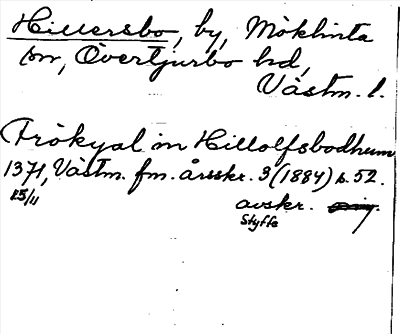 Hillersbo, by, Möklinta
sn, Övertjurbo hd,
Västm. l.
Frökyal in Hillolfsbodheum
1371, Västm. fm. årsskr. 3 (1884) s. 52.
25/11
avskr.
Styffe